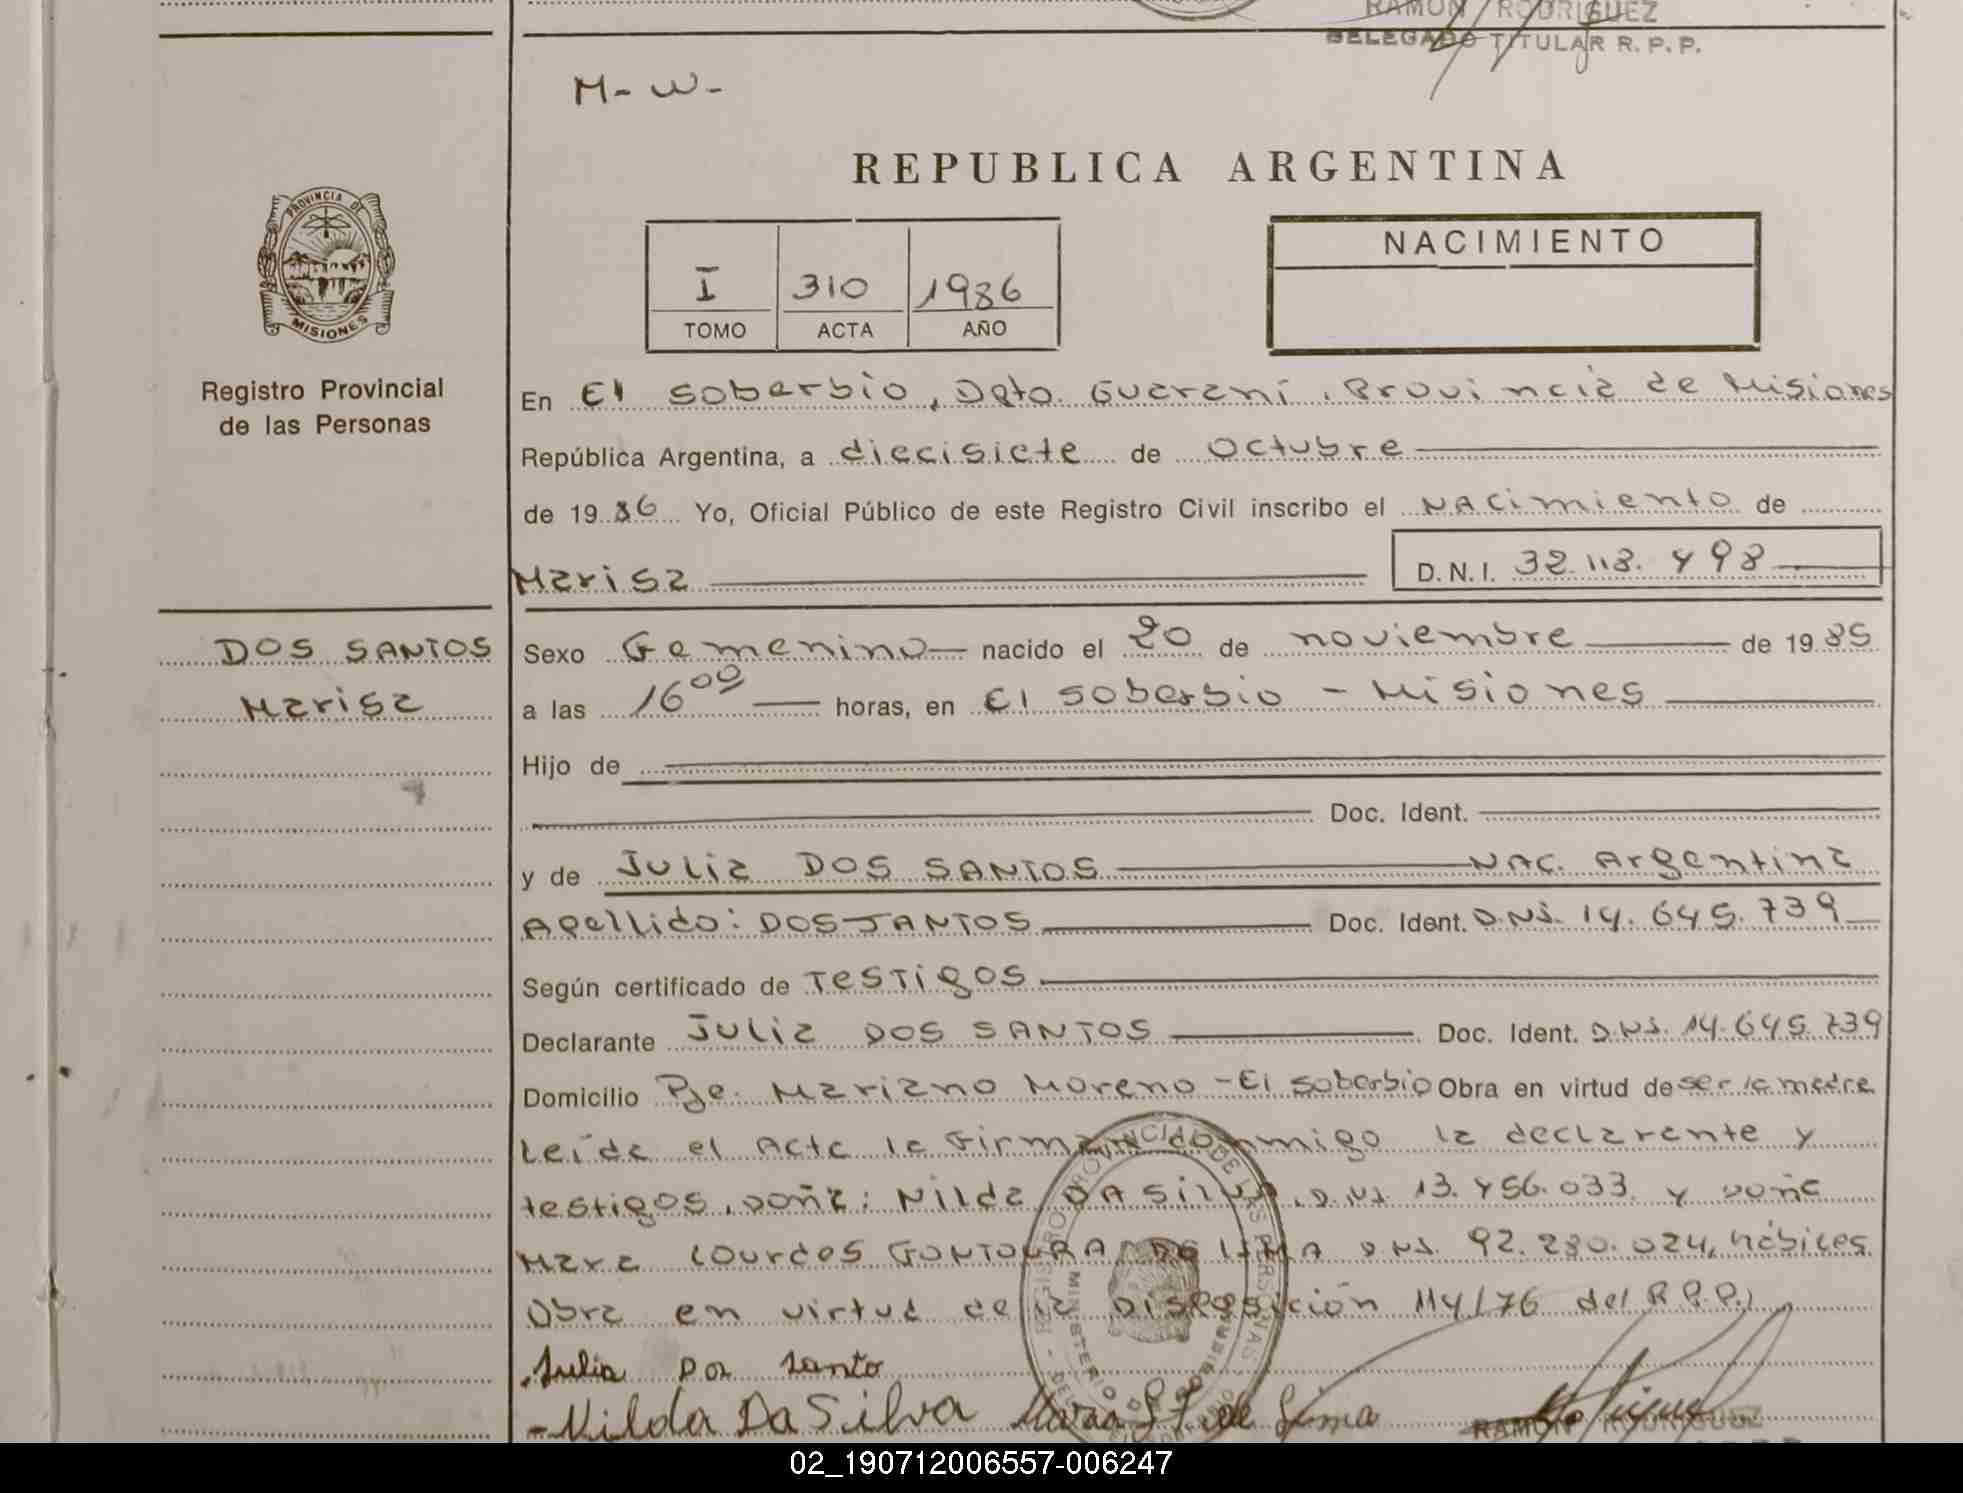 RAMON RODRIGUEZ
DELEGADO TITULAR R. P. P.
M- W-
REPUBLICA ARGENTINA
PROVINCIA DE
MISIONES
Registro Provincial
de las Personas
I 310 1986
TOMO ACTA AÑO
NACIMIENTO
En El Soberbio, Dpto. Guaraní, Provincia de Misiones
República Argentina, a diecisiete de Octubre
de 1986 Yo, Oficial Público de este Registro Civil inscribo el NACimiento de
Marisa D.N.I. 32.118.498
DOS SANTOS
Marisa
Sexo Femenino nacido el 20 de noviembre de 1985
a las 16 00 horas, en El Soberbio - Misiones
Hijo de
Doc. Ident.
y de Julia DOS SANTOS NAC. Argentina
Apellido: DOS SANTOS Doc. Ident. D.N.I. 14.645.739
Según certificado de Testigos
Declarante Julia DOS SANTOS Doc. Ident. D.N.I. 14.645.739
Domicilio Pje. Mariano Moreno - El Soberbio Obra en virtud de ser la madre
Leída el Acta la firman conmigo la declarante y
testigos, Doña: Nilda DA SILVA, D.N.I. 13.456.033 y Doña
Mara Lourdes DE LIMA D.N.I. 92.230.024, hábiles
Obra en virtud de la Disposición 114/76 del R.P.P.
Julia Dos Santo
- Nilda Da Silva de Lima
RAMON RODRIGUEZ
02_190712006557-006247